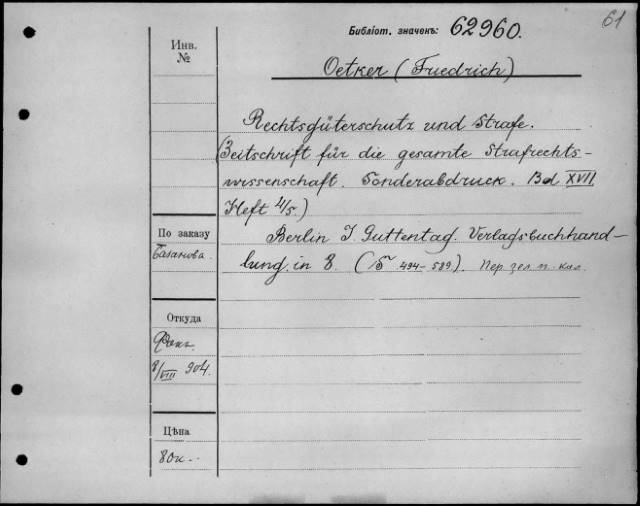 61
Библіот. значекъ: 62960.
Инв.
№
Oetker (Friedrich)
Rechtsgüterschutz und Strafe.
(Zeitschrift für die gesamte Strafrechts-
wissenschaft. Sonderabdruck. Bd XVII
Heft 4/5.)
Berlin J. Guttentag. Verlagsbuchhand-
lung. in 8. (S 494-589). Пер зел п. кал.
По заказу
Базанова.
Откуда
8/VIII 904.
Цѣна
80к.